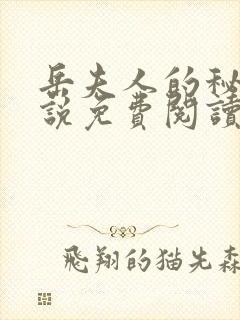 岳夫人的秘
說免費閱讀
飛翔的猫先森